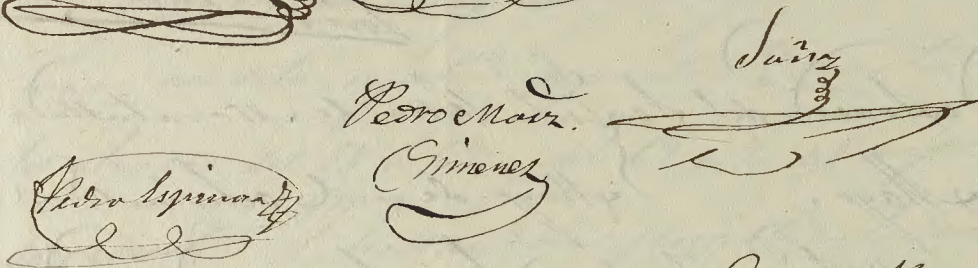 Sainz
Pedro Moiz.
Gimenez
Pedro Espinosa